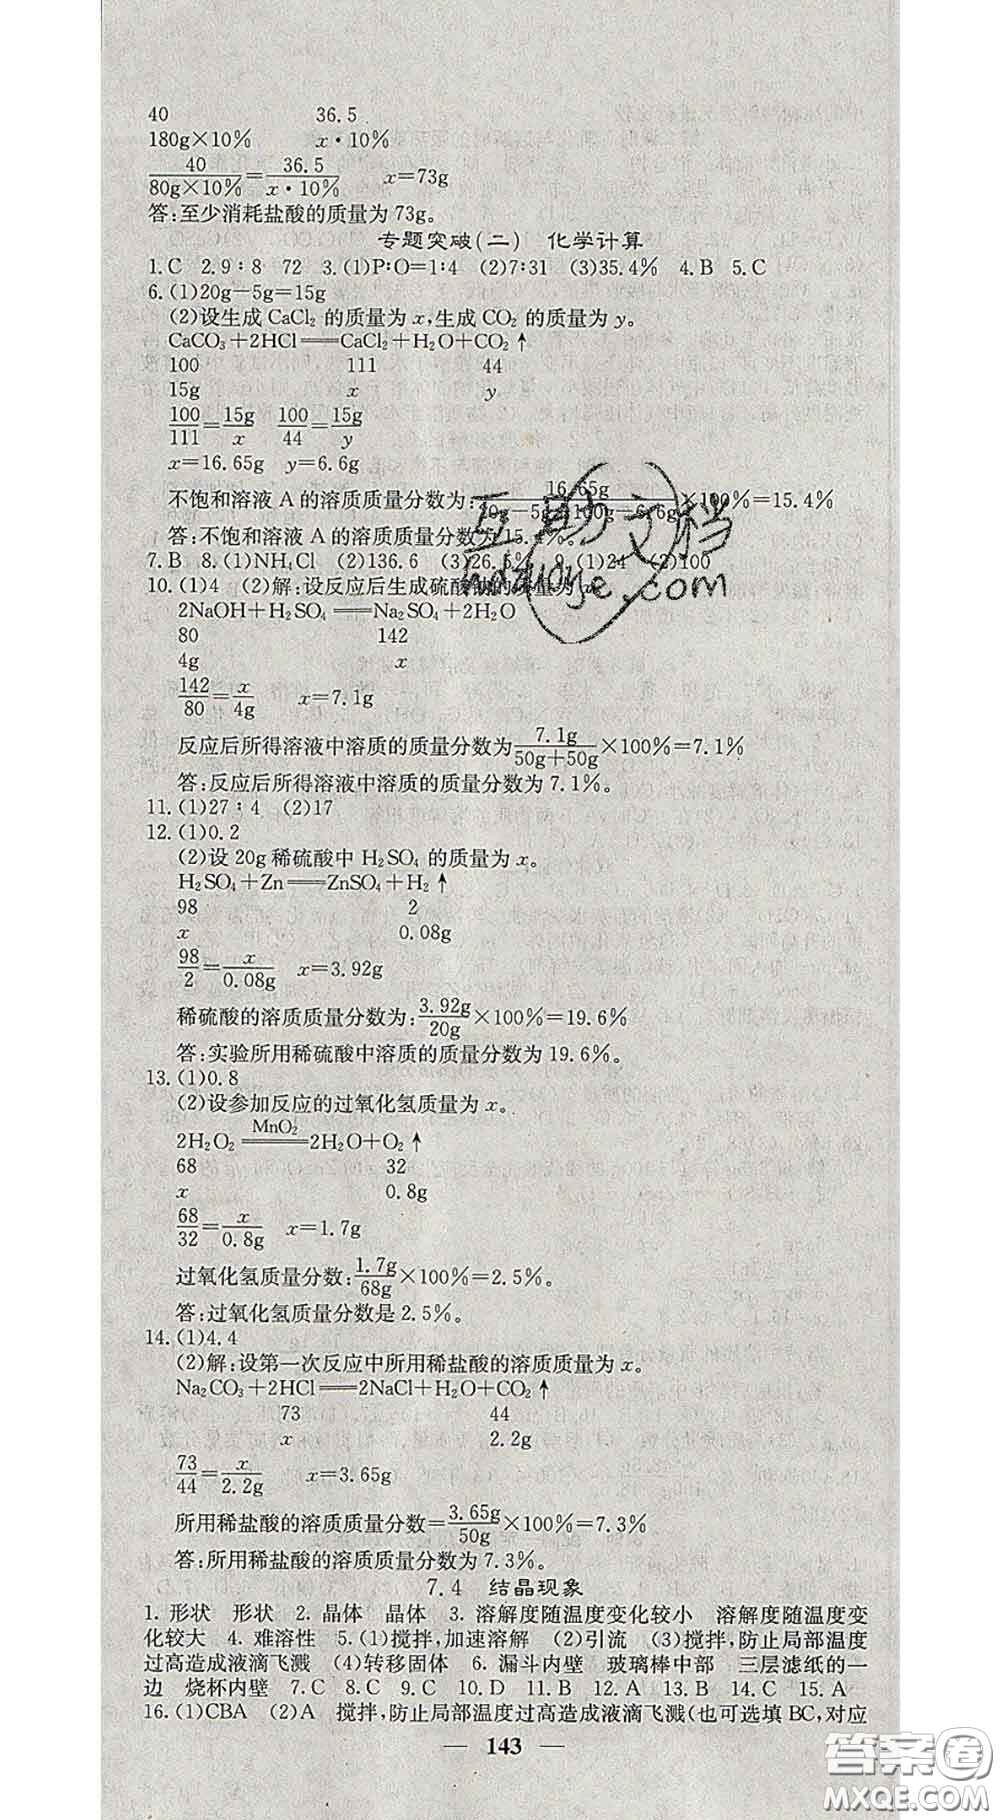 40 36.5
180g×10% x·10%
40/80g×10%=36.5/x·10% x=73g
答:至少消耗盐酸的质量为73g。
专题突破(二) 化学计算
1.C 2.9∶8 72 3.(1)P∶O=1∶4 (2)7∶31 (3)35.4% 4.B 5.C
6.(1)20g-5g=15g
(2)设生成CaCl₂的质量为x,生成CO₂的质量为y。
CaCO₃+2HCl══CaCl₂+H₂O+CO₂↑
100 111 44
15g x y
100/111=15g/x 100/44=15g/y
x=16.65g y=6.6g
不饱和溶液A的溶质质量分数为:16.65g/20g-5g+100g-6.6g×100%=15.4%
答:不饱和溶液A的溶质质量分数为15.4%。
7.B 8.(1)NH₄Cl (2)136.6 (3)26.5% 9.(1)24 (2)100
10.(1)4 (2)解:设反应后生成硫酸钠的质量为x。
2NaOH+H₂SO₄══Na₂SO₄+2H₂O
80 142
4g x
142/80=x/4g x=7.1g
反应后所得溶液中溶质的质量分数为7.1g/50g+50g×100%=7.1%
答:反应后所得溶液中溶质的质量分数为7.1%。
11.(1)27∶4 (2)17
12.(1)0.2
(2)设20g稀硫酸中H₂SO₄的质量为x。
H₂SO₄+Zn══ZnSO₄+H₂↑
98 2
x 0.08g
98/2=x/0.08g x=3.92g
稀硫酸的溶质质量分数为:3.92g/20g×100%=19.6%
答:实验所用稀硫酸中溶质的质量分数为19.6%。
13.(1)0.8
(2)设参加反应的过氧化氢质量为x。
2H₂O₂══MnO₂══2H₂O+O₂↑
68 32
x 0.8g
68/32=x/0.8g x=1.7g
过氧化氢质量分数:1.7g/68g×100%=2.5%。
答:过氧化氢质量分数是2.5%。
14.(1)4.4
(2)解:设第一次反应中所用稀盐酸的溶质质量为x。
Na₂CO₃+2HCl══2NaCl+H₂O+CO₂↑
73 44
x 2.2g
73/44=x/2.2g x=3.65g
所用稀盐酸的溶质质量分数=3.65g/50g×100%=7.3%
答:所用稀盐酸的溶质质量分数为7.3%。
7.4 结晶现象
1.形状 形状 2.晶体 晶体 3.溶解度随温度变化较小 溶解度随温度变
化较大 4.难溶性 5.(1)搅拌,加速溶解 (2)引流 (3)搅拌,防止局部温度
过高造成液滴飞溅 (4)转移固体 6.漏斗内壁 玻璃棒中部 三层滤纸的一
边 烧杯内壁 7.C 8.C 9.C 10.D 11.B 12.A 13.B 14.C 15.A
16.(1)CBA (2)A 搅拌,防止局部温度过高造成液滴飞溅(也可选填BC,对应
— 143 —
答案圈
MXQE.COM